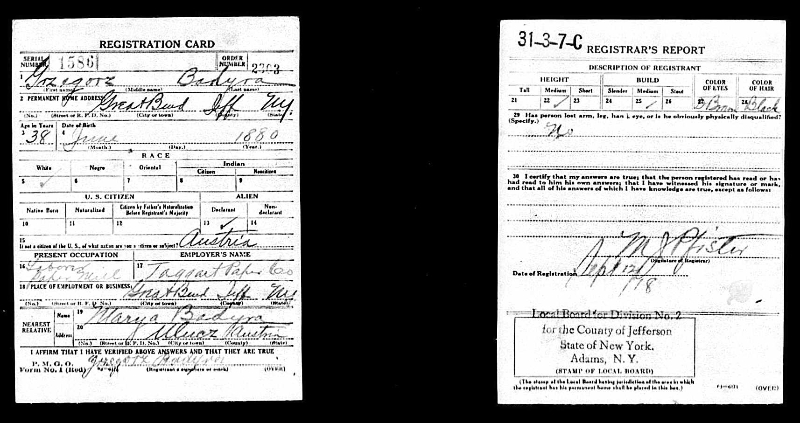 REGISTRATION CARD
SERIAL NUMBER 1586 ORDER NUMBER 2303
1 Grzegorz Badyra
(First name) (Middle name) (Last name)
2 PERMANENT HOME ADDRESS: Great Bend Jeff Ny.
(No.) (Street or R. F. D. No.) (City or town) (County) (State)
Age in Years Date of Birth
3 38 4 June 1880
(Month.) (Day.) (Year.)
RACE
White Negro Oriental Indian
Citizen Noncitizen
5 ✓ 6 7 8 9
U. S. CITIZEN ALIEN
Native Born Naturalized Citizen by Father's Naturalization Before Registrant's Majority Declarant Non-declarant
10 11 12 13 ✓ 14
15 If not a citizen of the U. S., of what nation are you a citizen or subject? Austria
PRESENT OCCUPATION EMPLOYER'S NAME
16 Laborer Paper Mill 17 Taggart Paper Co
18 PLACE OF EMPLOYMENT OR BUSINESS: Great Bend Jeff Ny
(No.) (Street or R. F. D. No.) (City or town) (County) (State)
NEAREST RELATIVE Name 19 Marya Badyra
Address 20 Ulucz Austria
(No.) (Street or R. F. D. No.) (City or town) (County) (State)
I AFFIRM THAT I HAVE VERIFIED ABOVE ANSWERS AND THAT THEY ARE TRUE
P. M. G. O.
Form No. 1 (Red) (Registrant's signature or mark) (OVER)
31-3-7-C REGISTRAR'S REPORT
DESCRIPTION OF REGISTRANT
HEIGHT BUILD COLOR OF EYES COLOR OF HAIR
Tall Medium Short Slender Medium Stout
21 22 / 23 24 25 / 26 27 Brown 28 Black
29 Has person lost arm, leg, hand, eye, or is he obviously physically disqualified?
(Specify.) No
30 I certify that my answers are true; that the person registered has read or has
had read to him his own answers; that I have witnessed his signature or mark,
and that all of his answers of which I have knowledge are true, except as follows:
M J Pfister
(Signature of Registrar)
Date of Registration Sept 12 1918
Local Board for Division No. 2
for the County of Jefferson
State of New York.
Adams, N. Y.
(STAMP OF LOCAL BOARD)
(The stamp of the Local Board having jurisdiction of the area in which
the registrant has his permanent home shall be placed in this box.)
(OVER)